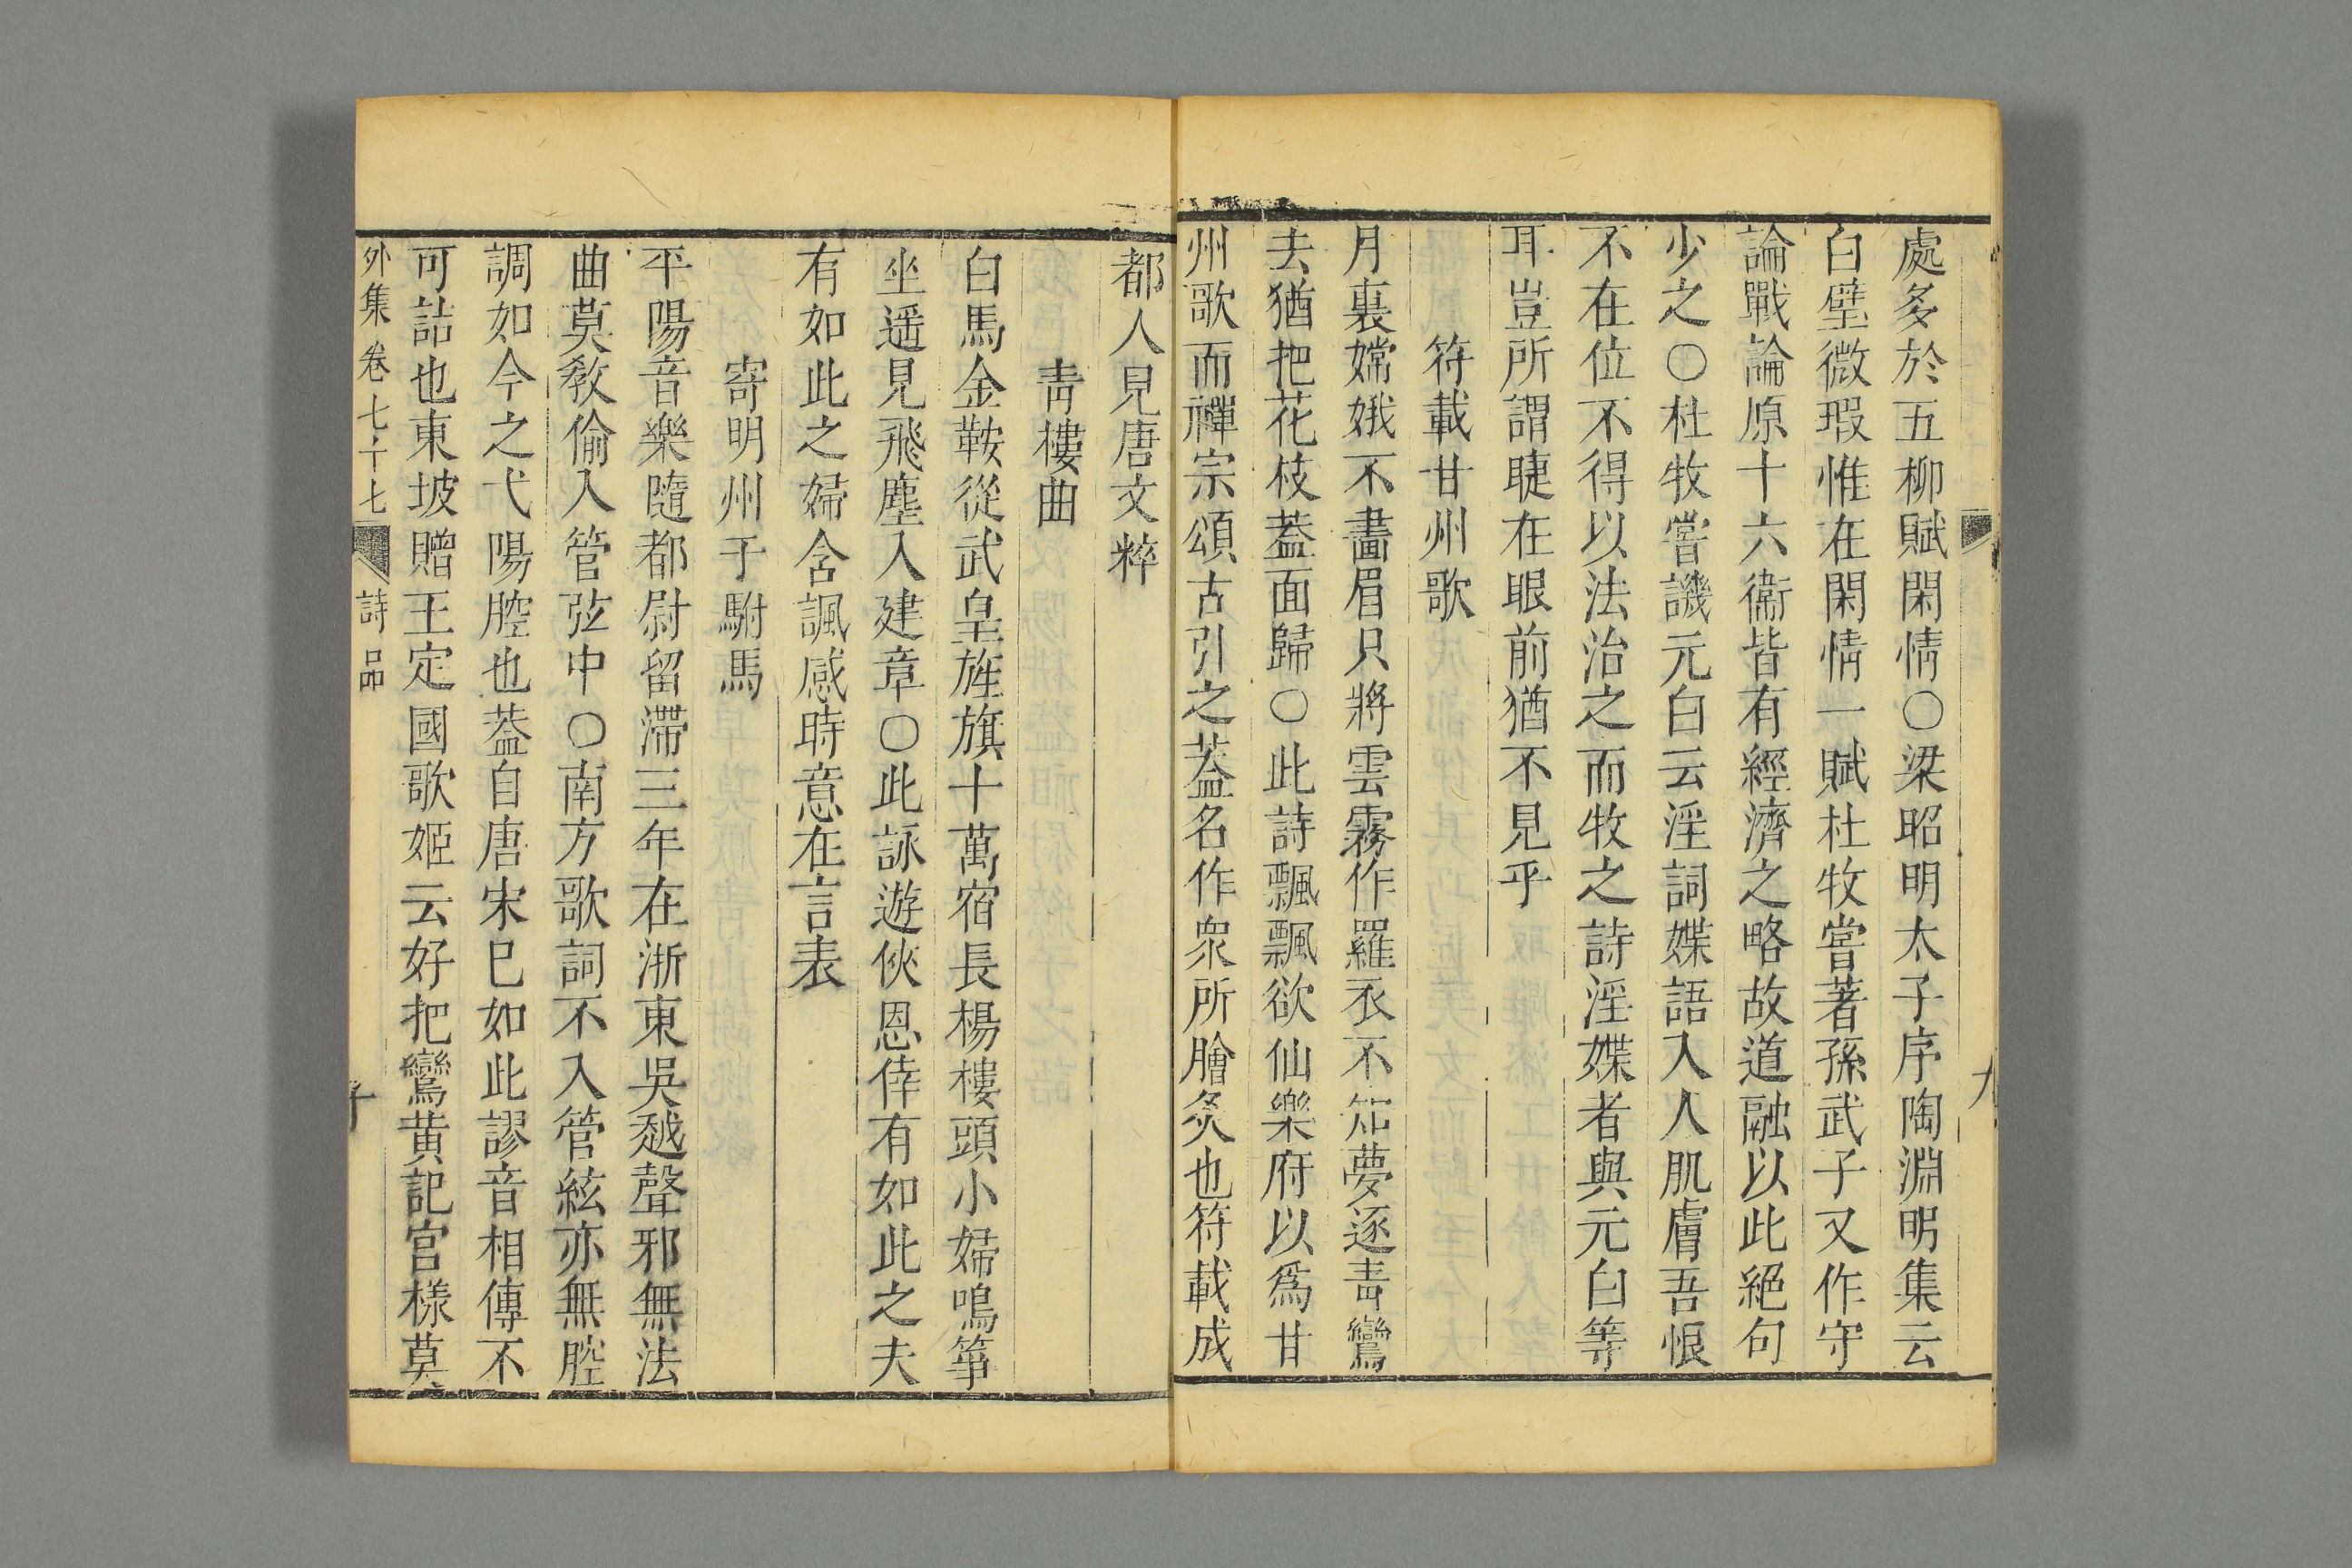 處多於五柳賦閑情○梁昭明太子序陶淵明集云
白璧微瑕惟在閑情一賦杜牧嘗著孫武子又作守
論戰論原十六衞皆有經濟之略故道融以此絕句
少之○杜牧嘗譏元白云淫詞媟語入人肌膚吾恨
不在位不得以法治之而牧之詩淫媟者與元白等
耳豈所謂睫在眼前猶不見乎
符載甘州歌
月裏嫦娥不畫眉只將雲霧作羅衣不知夢逐青鸞
去猶把花枝蓋面歸○此詩飄飄欲仙樂府以爲甘
州歌而禪宗頌古引之葢名作衆所膾炙也符載成
都人見唐文粹
青樓曲
白馬金鞍從武皇旌旗十萬宿長楊樓頭小婦鳴箏
坐遥見飛塵入建章○此詠遊俠恩倖有如此之夫
有如此之婦含諷感時意在言表
寄明州于駙馬
平陽音樂隨都尉留滯三年在浙東吳越聲邪無法
曲莫教偷入管弦中○南方歌詞不入管絃亦無腔
調如今之弋陽腔也葢自唐宋已如此謬音相傳不
可詰也東坡贈王定國歌姬云好把鸞黄記宫樣莫
外集卷七十七 詩品 十